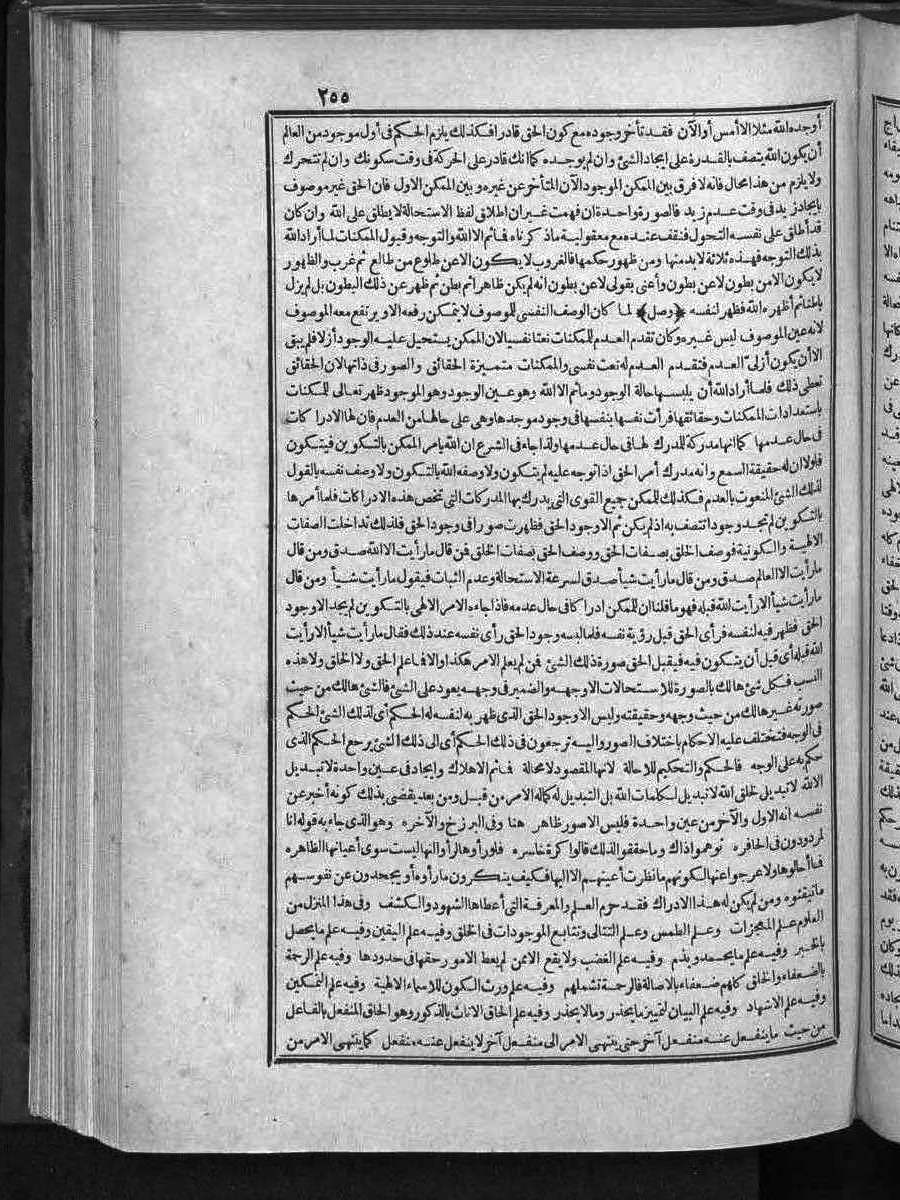 ٢٥٥
أوجده الله مثلا الا أمس أو الآن فقد تأخر وجوده مع كون الحق قادرا فكذلك يلزم الحكم فى أول موجود من العالم
أن يكون الله يتصف بالقدرة على ايجاد الشئ وان لم يوجده كما انك قادر على الحركة فى وقت سكونك وان لم تتحرك
ولا يلزم من هذا محال فانه لا فرق بين الممكن الموجود الآن المتأخر عن غيره وبين الممكن الاول فان الحق غير موصوف
بايجاد زيد فى وقت عدم زيد فالصورة واحدة ان فهمت غير ان اطلاق لفظ الاستحالة لا يطلق على الله وان كان
قد أطلق على نفسه التحول فنقف عنده مع معقولية ما ذكرناه فماثم الا الله والتوجه وقبول الممكنات لما أراد الله
بذلك التوجه فهذه ثلاثة لا بد منها ومن ظهور حكمها فالغروب لا يكون الا عن طلوع من طالع ثم غرب والظهور
لا يكون الا من بطون لا عن بطون وأعنى بقولى لا عن بطون أنه لم يكن ظاهرا ثم بطن ثم ظهر عن ذلك البطون بل لم يزل
باطنا ثم أظهره الله فظهر لنفسه ﴿وصل﴾ لما كان الوصف النفسى للموصوف لا يتمكن رفعه الا ويرتفع معه الموصوف
لانه عين الموصوف ليس غيره وكان تقدم العدم للممكنات نعتا نفسيا لان الممكن يستحيل عليه الوجود أزلا فلم يبق
الا أن يكون أزلىّ العدم فتقدم العدم له نعت نفسى والممكنات متميزة الحقائق والصور فى ذاتها لان الحقائق
تعطى ذلك فلما أراد الله أن يلبسها حالة الوجود وماثم الا الله وهو عين الوجود وهو الموجود ظهر تعالى للممكنات
باستعدادات الممكنات وحقائقها فرأت نفسها بنفسها فى وجود موجدها وهى على حالها من العدم فان لها الادراكات
فى حال عدمها كما انها مدركة للمدرك لها فى حال عدمها ولذا جاء فى الشرع ان الله يأمر الممكن بالتكوين فيتكون
فلولا ان له حقيقة السمع وانه مدرك أمر الحق اذا توجه عليه لم يتكون ولا وصفه الله بالتكون ولا وصف نفسه بالقول
لذلك الشئ المنعوت بالعدم فكذلك للممكن جميع القوى التى يدرك بها المدركات التى تخص هذه الادراكات فلما أمرها
بالتكوين لم تجد وجودا تتصف به اذ لم يكن ثم الا وجود الحق فظهرت صورا فى وجود الحق فلذلك تداخلت الصفات
الالهية والكونية فوصف الخلق بصفات الحق ووصف الحق بصفات الخلق فن قال ما رأيت الا الله صدق ومن قال
ما رأيت الا العالم صدق ومن قال ما رأيت شيأ صدق لسرعة الاستحالة وعدم الثبات فيقول ما رأيت شيأ ومن قال
ما رأيت شيأ الا رأيت الله قبله فهو ما قلنا ان للممكن ادراكا فى حال عدمه فاذا جاءه الامر الالهى بالتكوين لم يجد الا وجود
الحق فظهر فيه لنفسه فرأى الحق قبل رؤية نفسه فلما لبسه وجود الحق رأى نفسه عند ذلك فقال ما رأيت شيأ الا رأيت
الله قبله أى قبل أن يتكون فيه فيقبل الحق صورة ذلك الشئ فن لم يعلم الامر هكذا والا فما علم الحق ولا الخلق ولا هذه
النسب فكل شئ هالك بالصورة للاستحالات الا وجهه والضمير فى وجهه يعود على الشئ فالشئ هالك من حيث
صورته غير هالك من حيث وجهه وحقيقته وليس الا وجود الحق الذى ظهر به لنفسه له الحكم أى لذلك الشئ الحكم
فى الوجه فتختلف عليه الاحكام باختلاف الصور واليه ترجعون فى ذلك الحكم أى الى ذلك الشئ يرجع الحكم الذى
حكم به على الوجه فالحكم والتحكيم للاحالة لانها المقصود لا محالة فماثم الا هلاك وايجاد فى عين واحدة لا تبديل
الا لله لا تبديل لخلق الله لا تبديل لكلمات الله بل التبديل له كماله الامر من قبل ومن بعد يقضى بذلك كونه أخبر عن
نفسه انه الاول والآخر من عين واحدة فليس الا صور ظاهر هنا وفى البرزخ والآخره وهو الذى جاء به قوله انا
لمردودون فى الحافره توهموا ذاك وما حققوا لذلك قالوا كرة خاسره فلو رأوها لرأوا انها ليست سوى أعيانها الظاهره
فما أحالوها ولا عرجوا عنها لكونهم ما نظرت أعينهم الا اليها فكيف ينكرون ما رأوه أو يجحدون عن نفوسهم
ما تيقنوه ومن لم يكن له هذا الادراك فقد حرم العلم والمعرفة التى أعطاها الشهود والكشف وفى هذا المنزل من
العلوم علم المعجزات وعلم الطمس وعلم التتالى وتتابع الموجودات فى الخلق وفيه علم اليقين وفيه علم ما يحصل
بالخبر وفيه علم ما يحمد ويذم وفيه علم الغضب ولا يقع الا ممن لم يعط الامور حقها فى حدودها وفيه علم الرحمة
بالضعفاء والخلق كلهم ضعفاء بالاصالة فالرحمة تشملهم وفيه علم ورث الكون للاسماء الالهية وفيه علم التمكين
وفيه علم الاشهاد وفيه علم البيان لتمييز ما يحذر وما لا يحذر وفيه علم الحاق الاناث بالذكور وهو الحاق المنفعل بالفاعل
من حيث ما ينفعل عنه منفعل آخر حتى ينتهى الامر الى منفعل آخر لا ينفعل عنه منفعل كما ينتهى الامر من